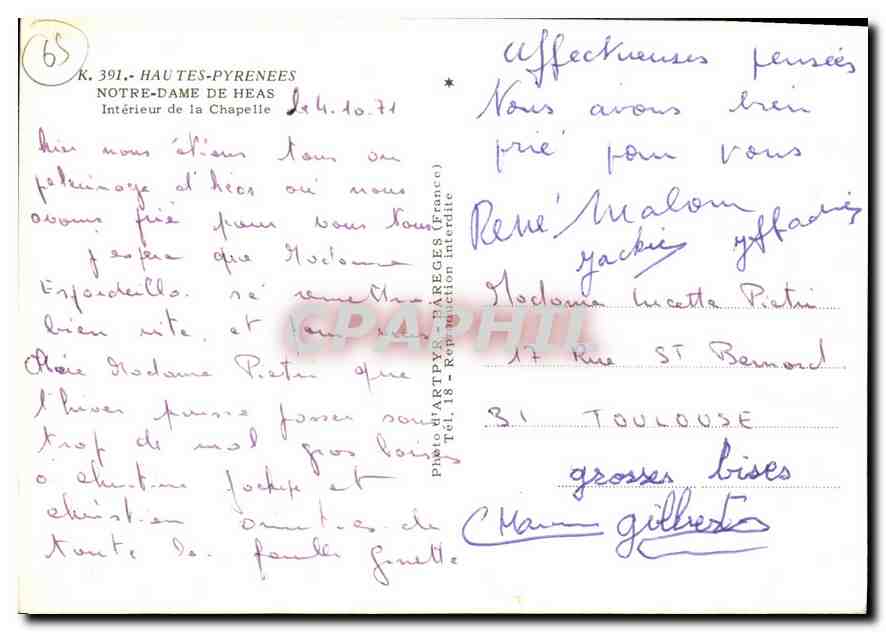 65
K. 391.- HAUTES-PYRENEES
NOTRE-DAME DE HEAS
Intérieur de la Chapelle
Le 4.10.71
hier nous étions tous en
pelerinage d'héas où nous
avons prié pour vous tous
j'espère que Madame
Esfardeilla se remettra
bien vite, et pour vous
chère Madame Pietri que
l'hiver puisse passer sans
trop de mal gros baisers
à christine Jackie et
christian amitiés de
toute la famille Ginette
*
Photo d'ARTPYR - BAREGES (France)
Tél. 18 - Reproduction interdite
CPAPHIL
affectueuses pensées
Nous avons bien
prié pour vous
René Malom
Jackie
Madame Lucette Pietri
17 Rue ST Bernard
31 TOULOUSE
grosses bises
gilberto